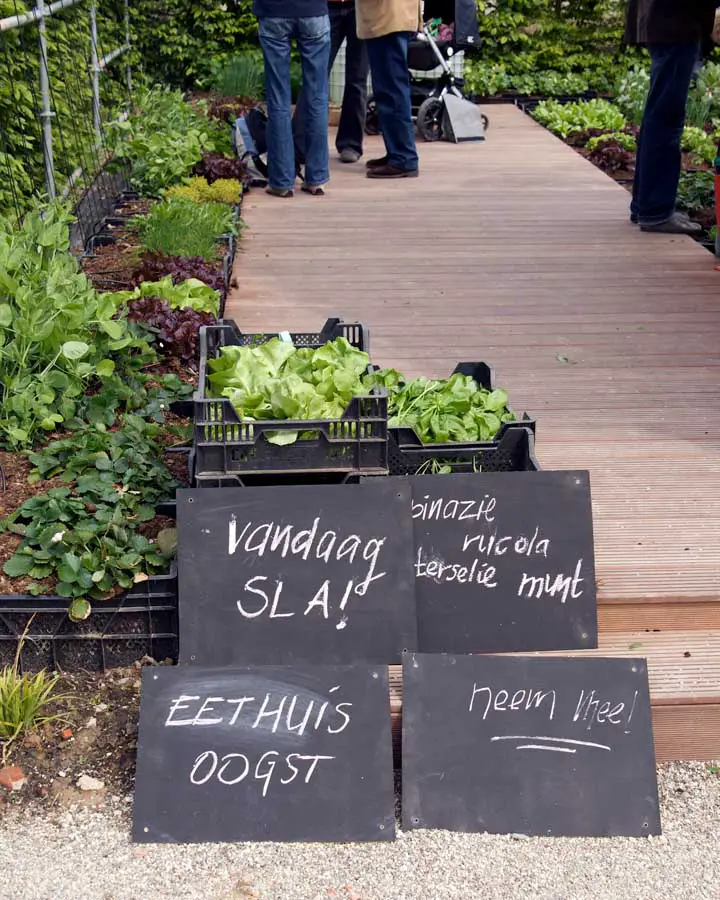 vandaag
SLA!
pinazie
rucola
terselie munt
EETHUIS
OOGST
neem mee!